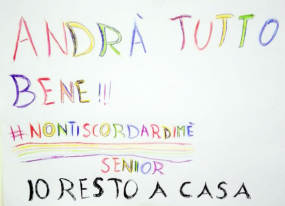 ANDRÀ TUTTO
BENE!!!
#NONTISCORDARDIMÈ
SENIOR
IO RESTO A CASA